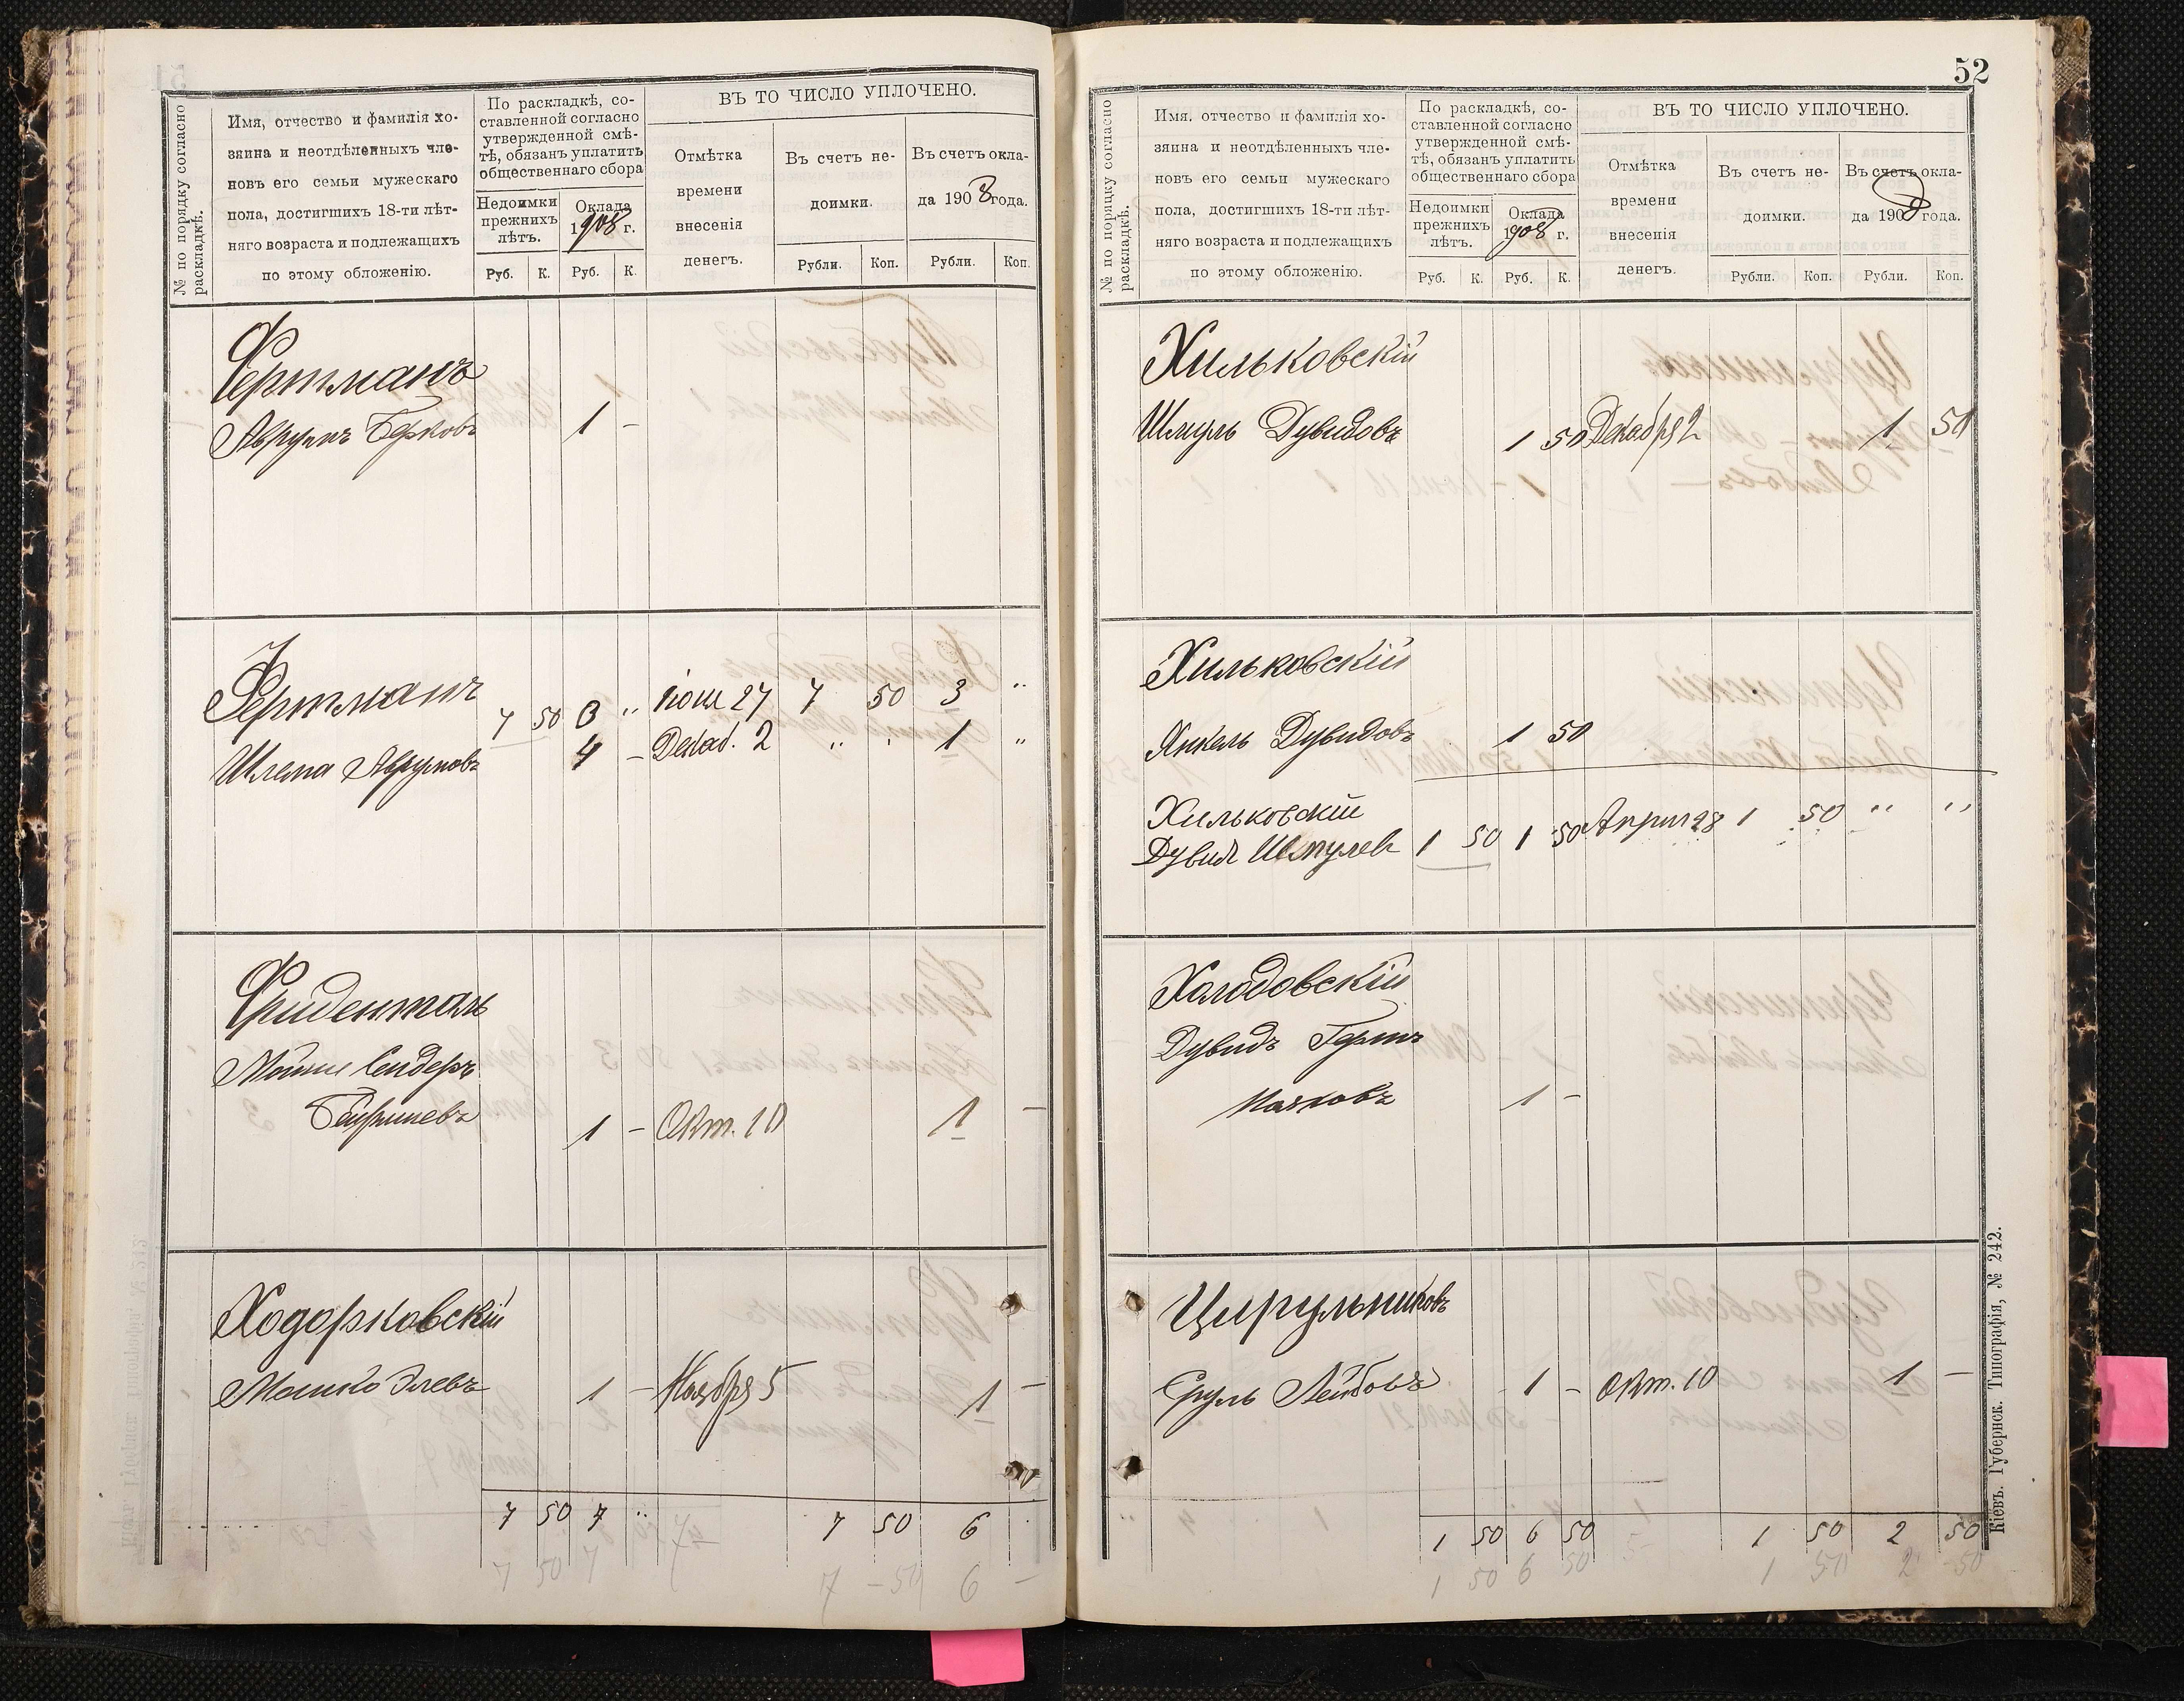 № по порядку согласно раскладкѣ.
Имя, отчество и фамилія хо-
зяина и неотдѣленныхъ чле-
новъ его семьи мужескаго
пола, достигшихъ 18-ти лѣт-
няго возраста и подлежащихъ
по этому обложенію.
По раскладкѣ, со-
ставленной согласно
утвержденной смѣ-
тѣ, обязанъ уплатить
общественнаго сбора
Недоимки прежнихъ лѣтъ.
Оклада 1908 г.
Руб. К. Руб. К.
ВЪ ТО ЧИСЛО УПЛОЧЕНО.
Отмѣтка времени внесенія денегъ.
Въ счетъ не-
доимки.
Рубли. Коп.
Въ счетъ окла-
да 1908 года.
Рубли. Коп.
Фертманъ
Аврумъ Берковъ 1 -
Фертманъ
7 50 3 " Іюня 27 7 50 3 "
Шлема Аврумовъ 4 - Декаб. 2 " " 1 "
Фриденталь
Мойше Сендеръ
1 - Окт. 10 1 -
Ходорковскій
Мошко Элевъ 1 - Ноября 5 1 -
7 50 7 " 7 50 6
7 50 7 7 - 50 6 -
52
№ по порядку согласно раскладкѣ.
Имя, отчество и фамилія хо-
зяина и неотдѣленныхъ чле-
новъ его семьи мужескаго
пола, достигшихъ 18-ти лѣт-
няго возраста и подлежащихъ
по этому обложенію.
По раскладкѣ, со-
ставленной согласно
утвержденной смѣ-
тѣ, обязанъ уплатить
общественнаго сбора
Недоимки прежнихъ лѣтъ.
Оклада 1908 г.
Руб. К. Руб. К.
ВЪ ТО ЧИСЛО УПЛОЧЕНО.
Отмѣтка времени внесенія денегъ.
Въ счетъ не-
доимки.
Рубли. Коп.
Въ счетъ окла-
да 1908 года.
Рубли. Коп.
Хильковскій
Шмуль Дувидовъ 1 50 Декабря 2 1 50
Хильковскій
Янкель Дувидовъ 1 50
Хильковскій
Дувид Шмулев 1 50 1 50 Април 28 1 50 " "
Холодовскій
Дувидъ Герш
1 -
Цирульниковъ
Сруль Лейбовъ 1 - Окт. 10 1 -
1 50 6 50 1 50 2 50
1 50 6 50 1 50 2 50
Кіевъ. Губернск. Типографія, № 242.